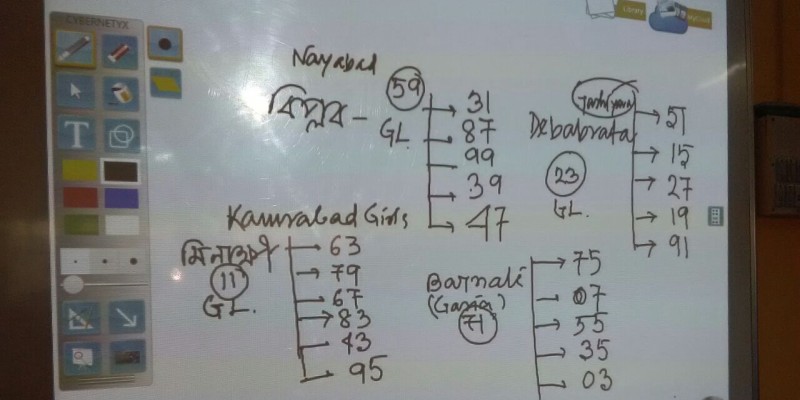 CYBERNETYX
Library
T
Nayabad
বিপ্লব -
59
GL.
31
87
99
39
47
Debabrata
23
GL.
51
15
27
19
91
Kamrabad Girls
11
GL.
63
79
67
83
43
95
Barnali
(Garia)
71
75
07
55
35
03